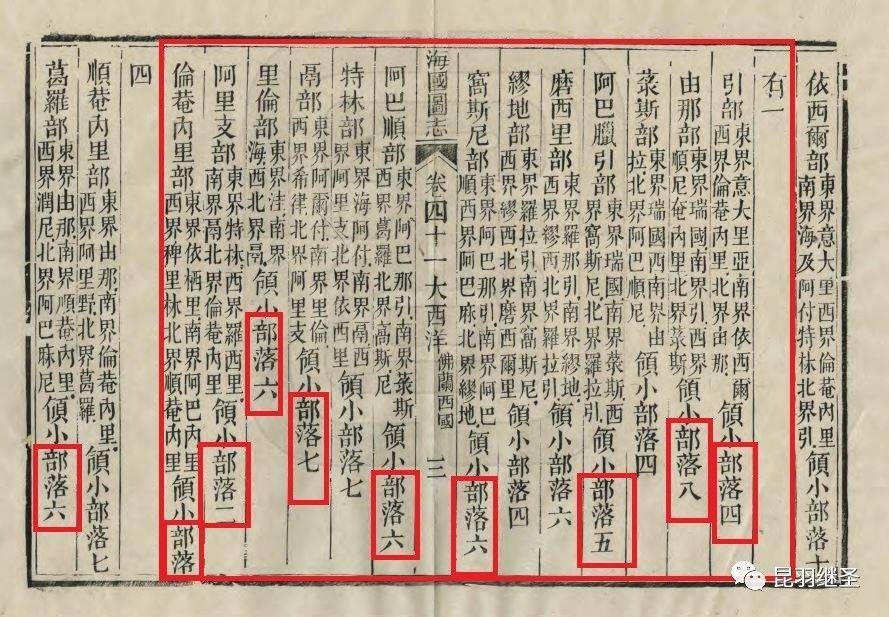 依西爾部東界意大里西界倫菴內里南界海及阿付特林北界引領小部落十
有一
引部東界意大里亞南界依西爾西界倫菴內里北界由那領小部落四
由那部東界瑞國南界引西界順尼奄內里北界菉斯領小部落八
菉斯部東界瑞國西南界由拉北界阿巴順尼領小部落四
阿巴臘引部東界瑞國南界菉斯西界窩斯尼北界羅拉引領小部落五
磨西里部東界羅那引南界繆地西界繆西北界羅拉引領小部落六
繆地部東界羅拉引南界窩斯尼西界繆西北界磨西爾里領小部落四
窩斯尼部東界阿巴那引南界阿巴順西界阿巴麻北界繆地領小部落六
海國圖志 卷四十一 大西洋 佛蘭西國 三
阿巴順部東界阿巴那引南界菉斯西界葛羅北界高斯尼領小部落六
特林部東界海阿付南界鬲西界阿里支北界依西里領小部落七
鬲部東界阿爾付南界里倫西界希律北界阿里支領小部落七
里倫部東界洼南界海西北界鬲領小部落六
阿里支部東界特林西界羅西里南界鬲北界倫菴內里領小部落二
倫菴內里部東界依栖里南界阿巴內里西界稗里林北界順菴內里領小部落
四
順菴內里部東界由那南界倫菴內里西界阿里野北界葛羅領小部落七
葛羅部東界由那南界順菴內里西界潤尼北界阿巴麻尼領小部落六
昆羽继圣